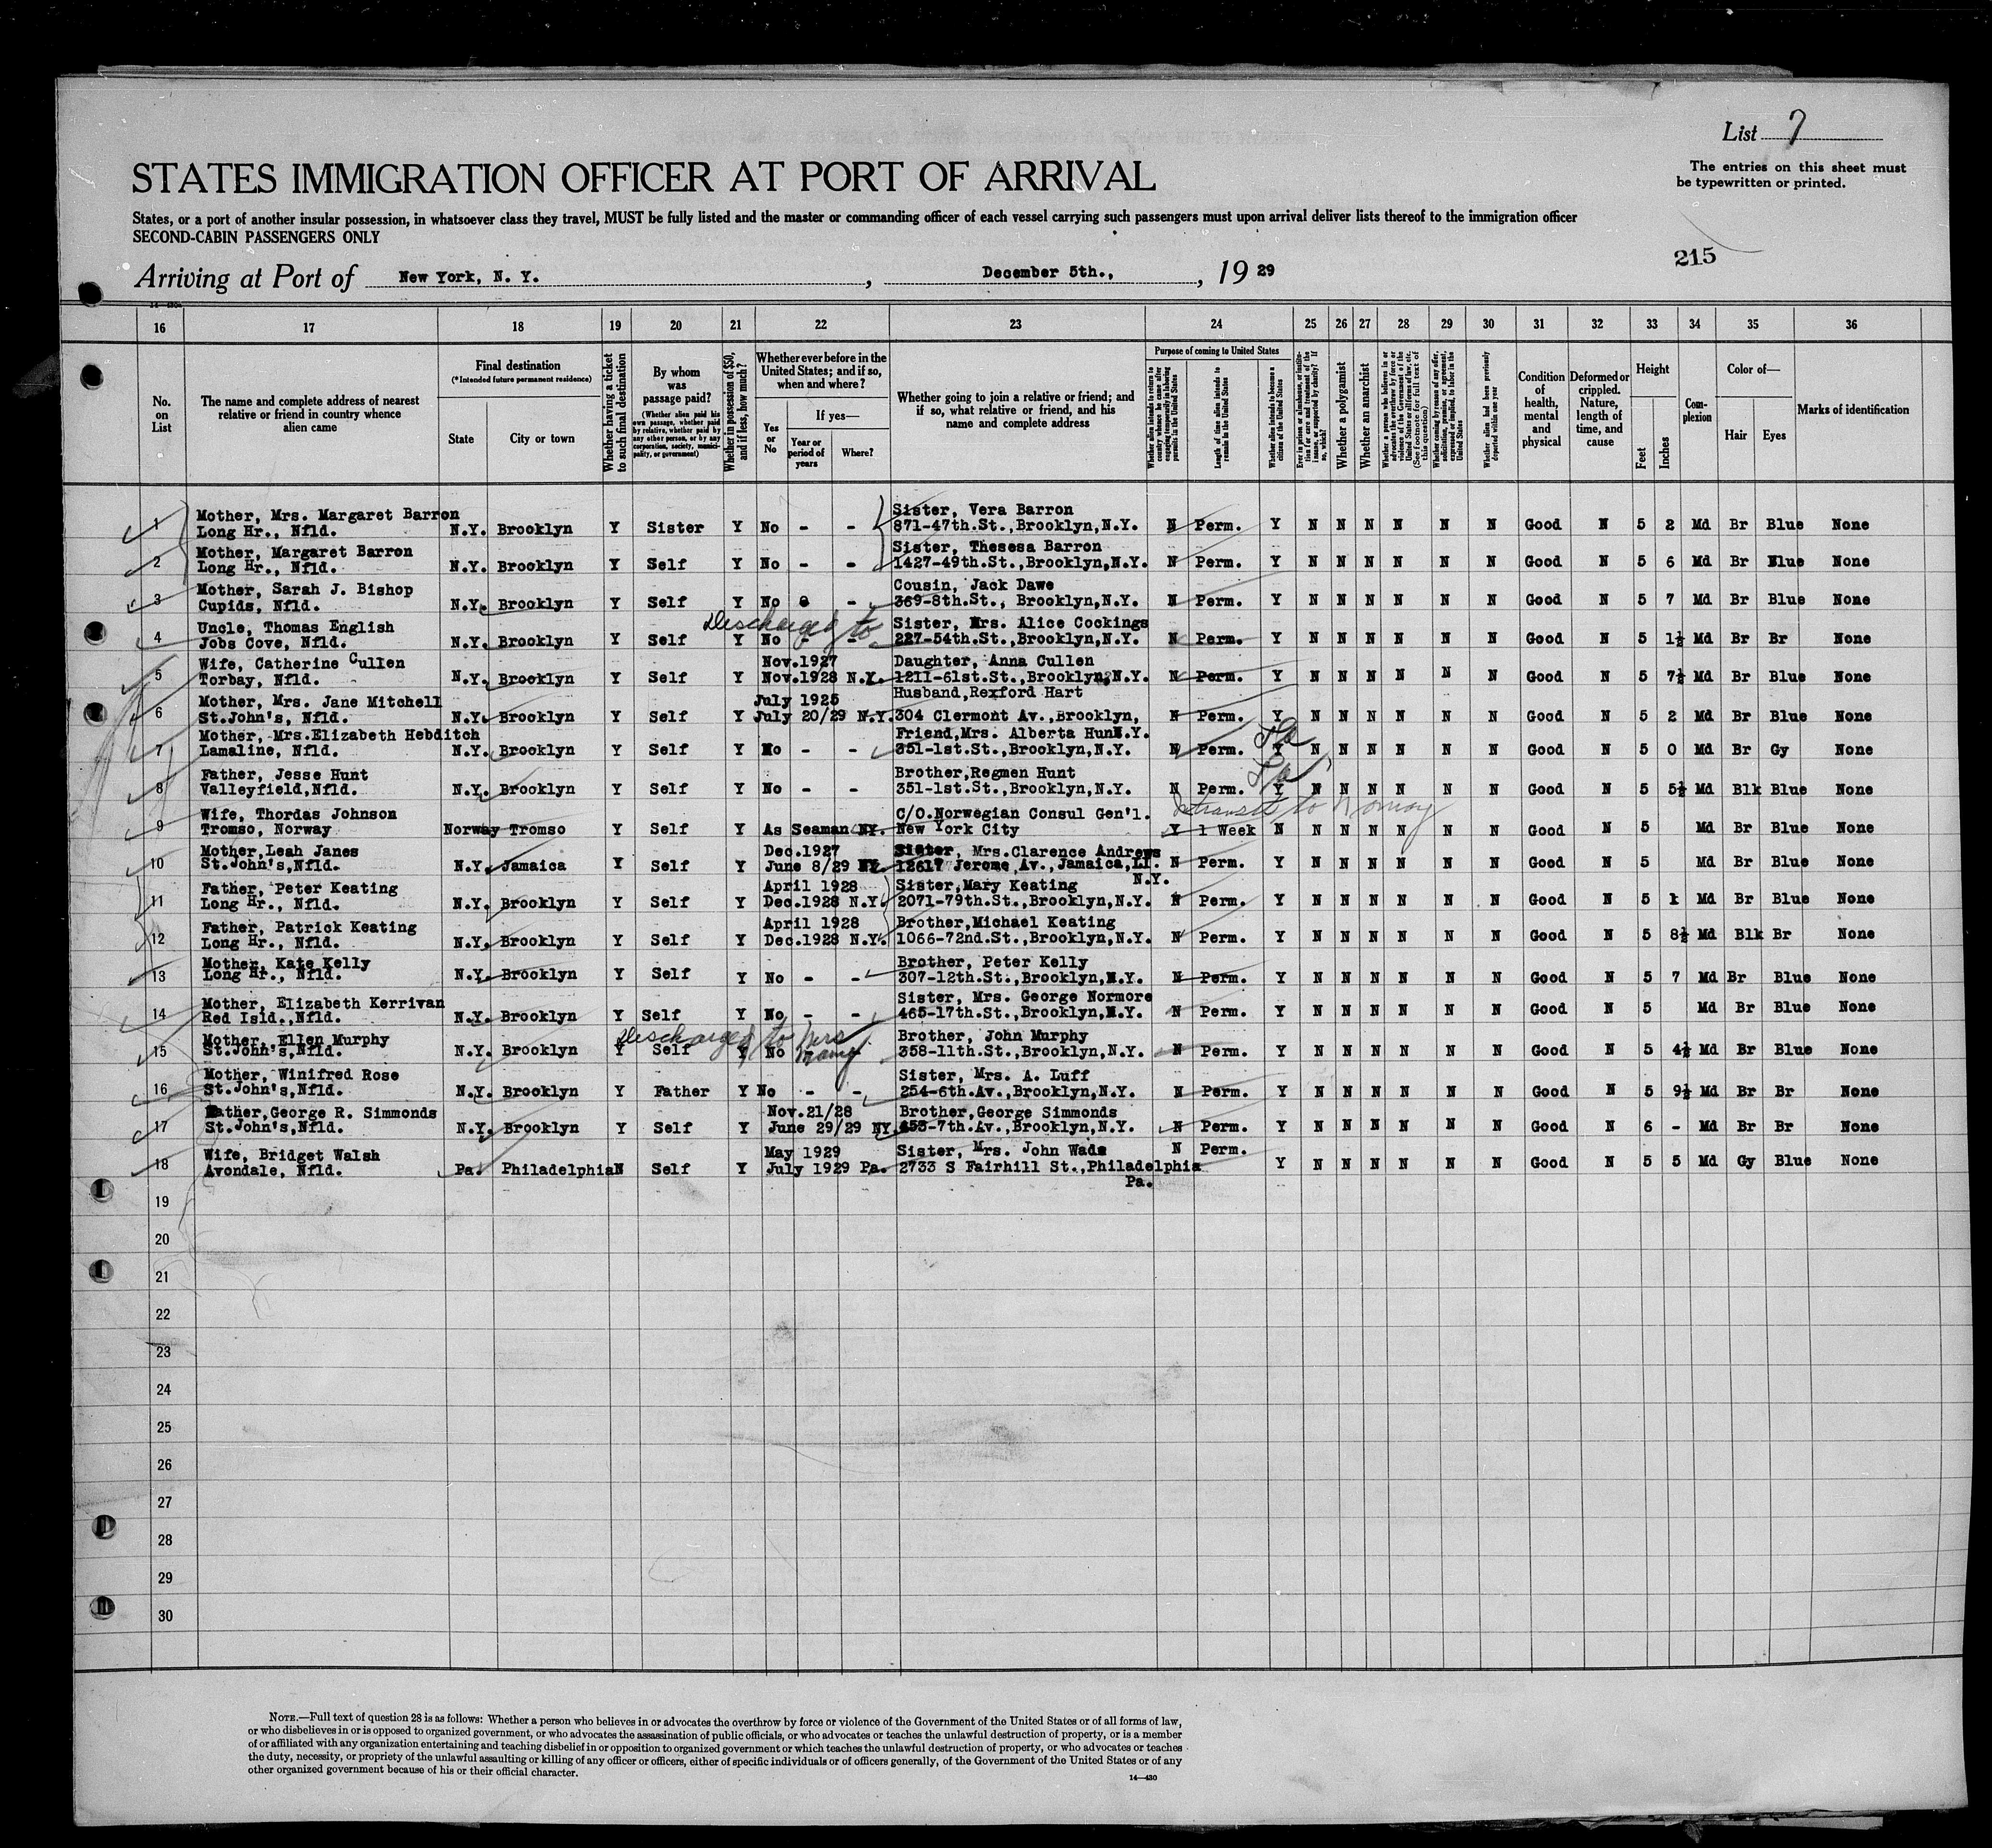 List 7
The entries on this sheet must
be typewritten or printed.
STATES IMMIGRATION OFFICER AT PORT OF ARRIVAL
States, or a port of another insular possession, in whatsoever class they travel, MUST be fully listed and the master or commanding officer of each vessel carrying such passengers must upon arrival deliver lists thereof to the immigration officer
SECOND-CABIN PASSENGERS ONLY
215
Arriving at Port of New York, N. Y. , December 5th., , 19 29
16 17 18 19 20 21 22 23 24 25 26 27 28 29 30 31 32 33 34 35 36
No. on List
The name and complete address of nearest relative or friend in country whence alien came
Final destination
(*Intended future permanent residence)
State
City or town
Whether having a ticket to such final destination
By whom was passage paid?
(Whether alien paid his own passage, whether paid by relative, whether paid by any other person, or by any corporation, society, municipality, or government)
Whether in possession of $50, and if less, how much?
Whether ever before in the United States; and if so, when and where?
Yes or No
If yes—
Year or period of years
Where?
Whether going to join a relative or friend; and if so, what relative or friend, and his name and complete address
Purpose of coming to United States
Whether alien intends to return to country whence he came after engaging temporarily in laboring pursuits in the United States
Length of time alien intends to remain in the United States
Whether alien intends to become a citizen of the United States
Ever in prison or almshouse, or institution for care and treatment of the insane, or supported by charity? If so, which?
Whether a polygamist
Whether an anarchist
Whether a person who believes in or advocates the overthrow by force or violence of the Government of the United States or all forms of law, etc. (See footnote for full text of this question)
Whether coming by reason of any offer, solicitation, promise, or agreement, expressed or implied, to labor in the United States
Whether alien had been previously deported within one year
Condition of health, mental and physical
Deformed or crippled. Nature, length of time, and cause
Height
Feet
Inches
Complexion
Color of—
Hair
Eyes
Marks of identification
Mother, Mrs. Margaret Barron Sister, Vera Barron
1 Long Hr., Nfld. N.Y. Brooklyn Y Sister Y No - - 871-47th.St.,Brooklyn,N.Y. N Perm. Y N N N N N N Good N 5 2 Md Br Blue None
Mother, Margaret Barron Sister, Thesesa Barron
2 Long Hr., Nfld. N.Y. Brooklyn Y Self Y No - - 1427-49th.St.,Brooklyn,N.Y. N Perm. Y N N N N N N Good N 5 6 Md Br Blue None
Mother, Sarah J. Bishop Cousin, Jack Dawe
3 Cupids, Nfld. N.Y. Brooklyn Y Self Y No - 369-8th.St., Brooklyn,N.Y. N Perm. Y N N N N N N Good N 5 7 Md Br Blue None
Discharged to
Uncle, Thomas English Sister, Mrs. Alice Cockings
4 Jobs Cove, Nfld. N.Y. Brooklyn Y Self Y No - - 227-54th.St.,Brooklyn,N.Y. N Perm. Y N N N N N N Good N 5 1½ Md Br Br None
Wife, Catherine Cullen Nov.1927 Daughter, Anna Cullen
5 Torbay, Nfld. N.Y. Brooklyn Y Self Y Nov.1928 N.Y. 1211-61st.St.,Brooklyn,N.Y. N Perm. Y N N N N N N Good N 5 7½ Md Br Blue None
Mother, Mrs. Jane Mitchell July 1925 Husband,Rexford Hart
6 St.John's, Nfld. N.Y. Brooklyn Y Self Y July 20/29 N.Y. 304 Clermont Av.,Brooklyn, N Perm. Y N N N N N N Good N 5 2 Md Br Blue None
N.Y.
Mother, Mrs.Elizabeth Hebditch Friend,Mrs. Alberta Hunt
7 Lamaline, Nfld. N.Y. Brooklyn Y Self Y No - - 351-1st.St.,Brooklyn,N.Y. N Perm. Y N N N N N N Good N 5 0 Md Br Gy None
Father, Jesse Hunt Brother,Regmen Hunt
8 Valleyfield,Nfld. N.Y. Brooklyn Y Self Y No - - 351-1st.St.,Brooklyn,N.Y. N Perm. Y N N N N N N Good N 5 5½ Md Blk Blue None
Intransit to Norway
Wife, Thordas Johnson C/O.Norwegian Consul Gen'l.
9 Tromso, Norway Norway Tromso Y Self Y As Seaman NY. New York City Y 1 Week N N N N N N N Good N 5 Md Br Blue None
Mother,Leah Janes Dec.1927 Sister, Mrs.Clarence Andrews
10 St.John's,Nfld. N.Y. Jamaica Y Self Y June 8/29 NY. 12617 Jerome Av.,Jamaica,LI. N Perm. Y N N N N N N Good N 5 Md Br Blue None
N.Y.
Father, Peter Keating April 1928 Sister,Mary Keating
11 Long Hr., Nfld. N.Y. Brooklyn Y Self Y Dec.1928 N.Y. 2071-79th.St.,Brooklyn,N.Y. N Perm. Y N N N N N N Good N 5 1 Md Br Blue None
Father, Patrick Keating April 1928 Brother,Michael Keating
12 Long Hr., Nfld. N.Y. Brooklyn Y Self Y Dec.1928 N.Y. 1066-72nd.St.,Brooklyn,N.Y. N Perm. Y N N N N N N Good N 5 8½ Md Blk Br None
Mother, Kate Kelly Brother, Peter Kelly
13 Long Hr., Nfld. N.Y. Brooklyn Y Self Y No - - 307-12th.St.,Brooklyn,N.Y. N Perm. Y N N N N N N Good N 5 7 Md Br Blue None
Mother, Elizabeth Kerrivan Sister, Mrs. George Normore
14 Red Isld.,Nfld. N.Y. Brooklyn Y Self Y No - - 465-17th.St.,Brooklyn,N.Y. N Perm. Y N N N N N N Good N 5 Md Br Blue None
Discharged to Mrs
Mother, Ellen Murphy Brother, John Murphy
15 St.John's,Nfld. N.Y. Brooklyn Y Self Y No 358-11th.St.,Brooklyn,N.Y. N Perm. Y N N N N N N Good N 5 4½ Md Br Blue None
Mother, Winifred Rose Sister, Mrs. A. Luff
16 St.John's,Nfld. N.Y. Brooklyn Y Father Y No - - 254-6th.Av.,Brooklyn,N.Y. N Perm. Y N N N N N N Good N 5 9½ Md Br Br None
Father,George R. Simmonds Nov.21/28 Brother,George Simmonds
17 St.John's,Nfld. N.Y. Brooklyn Y Self Y June 29/29 NY. 453-7th.Av.,Brooklyn,N.Y. N Perm. Y N N N N N N Good N 6 - Md Br Br None
Wife, Bridget Walsh May 1929 Sister, Mrs. John Wade N Perm.
18 Avondale, Nfld. Pa. Philadelphia N Self Y July 1929 Pa. 2733 S Fairhill St.,Philadelphia Y N N N N N N Good N 5 5 Md Gy Blue None
Pa.
19
20
21
22
23
24
25
26
27
28
29
30
NOTE.—Full text of question 28 is as follows: Whether a person who believes in or advocates the overthrow by force or violence of the Government of the United States or of all forms of law,
or who disbelieves in or is opposed to organized government, or who advocates the assassination of public officials, or who advocates or teaches the unlawful destruction of property, or is a member
of or affiliated with any organization entertaining and teaching disbelief in or opposition to organized government or which teaches the unlawful destruction of property, or who advocates or teaches
the duty, necessity, or propriety of the unlawful assaulting or killing of any officer or officers, either of specific individuals or of officers generally, of the Government of the United States or of any
other organized government because of his or their official character.
14—430